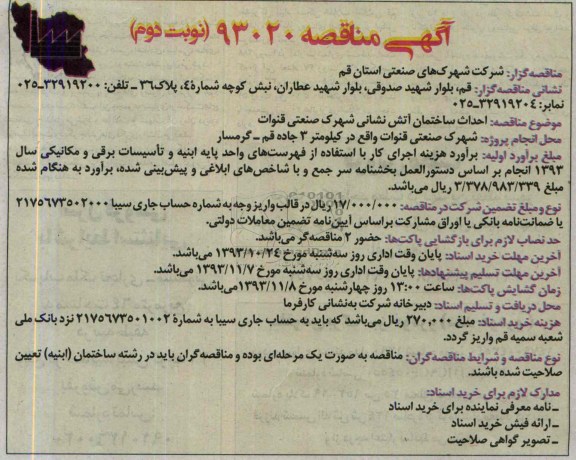 آگهی مناقصه ۹۳۰۲۰ (نوبت دوم)
مناقصه‌گزار: شرکت شهرک‌های صنعتی استان قم
نشانی مناقصه‌گزار: قم، بلوار شهید صدوقی، بلوار شهید عطاران، نبش کوچه شماره٤، پلاک٣٦ ـ تلفن: ٣٢٩١٩٢٠٠ـ٠٢٥
نمابر: ٣٢٩١٩٢٠٤ـ٠٢٥
موضوع مناقصه: احداث ساختمان آتش نشانی شهرک صنعتی قنوات
محل انجام پروژه: شهرک صنعتی قنوات واقع در کیلومتر ۳ جاده قم ـ گرمسار
مبلغ برآورد اولیه: برآورد هزینه اجرای کار با استفاده از فهرست‌های واحد پایه ابنیه و تأسیسات برقی و مکانیکی سال
۱۳۹۳ انجام بر اساس دستورالعمل بخشنامه سر جمع و با شاخص‌های ابلاغی و پیش‌بینی شده، برآورد به هنگام شده
۳/۳۷۸/۹۸۳/۳۳۹ ریال می‌باشد.
نوع و مبلغ تضمین شرکت در مناقصه: ۱۷/۰۰۰/۰۰۰ ریال در قالب واریز وجه به شماره حساب جاری سیبا ۲۱۷۵۶۷۳۵۰۲۰۰۰
یا ضمانت‌نامه بانکی یا اوراق مشارکت براساس آیین‌نامه تضمین معاملات دولتی.
حد نصاب لازم برای بازگشایی پاکت‌ها: حضور ۲ مناقصه‌گر می‌باشد.
آخرین مهلت خرید اسناد: پایان وقت اداری روز سه‌شنبه مورخ ۱۳۹۳/۱۰/۲۴ می‌باشد.
آخرین مهلت تسلیم پیشنهادها: پایان وقت اداری روز سه‌شنبه مورخ ۱۳۹۳/۱۱/۷ می‌باشد.
زمان گشایش پاکت‌ها: ساعت ۱۳:۰۰ روز چهارشنبه مورخ ۱۳۹۳/۱۱/۸ می‌باشد.
محل دریافت و تسلیم اسناد: دبیرخانه شرکت به‌نشانی کارفرما
هزینه خرید اسناد: مبلغ ۲۷۰,۰۰۰ ریال می‌باشد که باید به حساب جاری سیبا به شمارهٔ ۲۱۷۵۶۷۳۵۰۱۰۰۲ نزد بانک ملی
شعبه سمیه قم واریز گردد.
نوع مناقصه و شرایط مناقصه‌گران: مناقصه به صورت یک مرحله‌ای بوده و مناقصه‌گران باید در رشته ساختمان (ابنیه) تعیین
صلاحیت شده باشند.
مدارک لازم برای خرید اسناد:
ـ نامه معرفی نماینده برای خرید اسناد
ـ ارائه فیش خرید اسناد
ـ تصویر گواهی صلاحیت